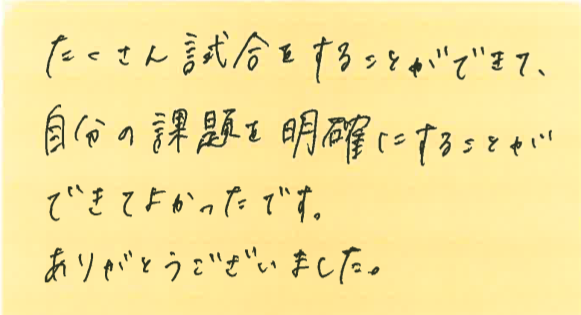 たくさん試合をすることができて、
自分の課題を明確にすることが
できてよかったです。
ありがとうございました。